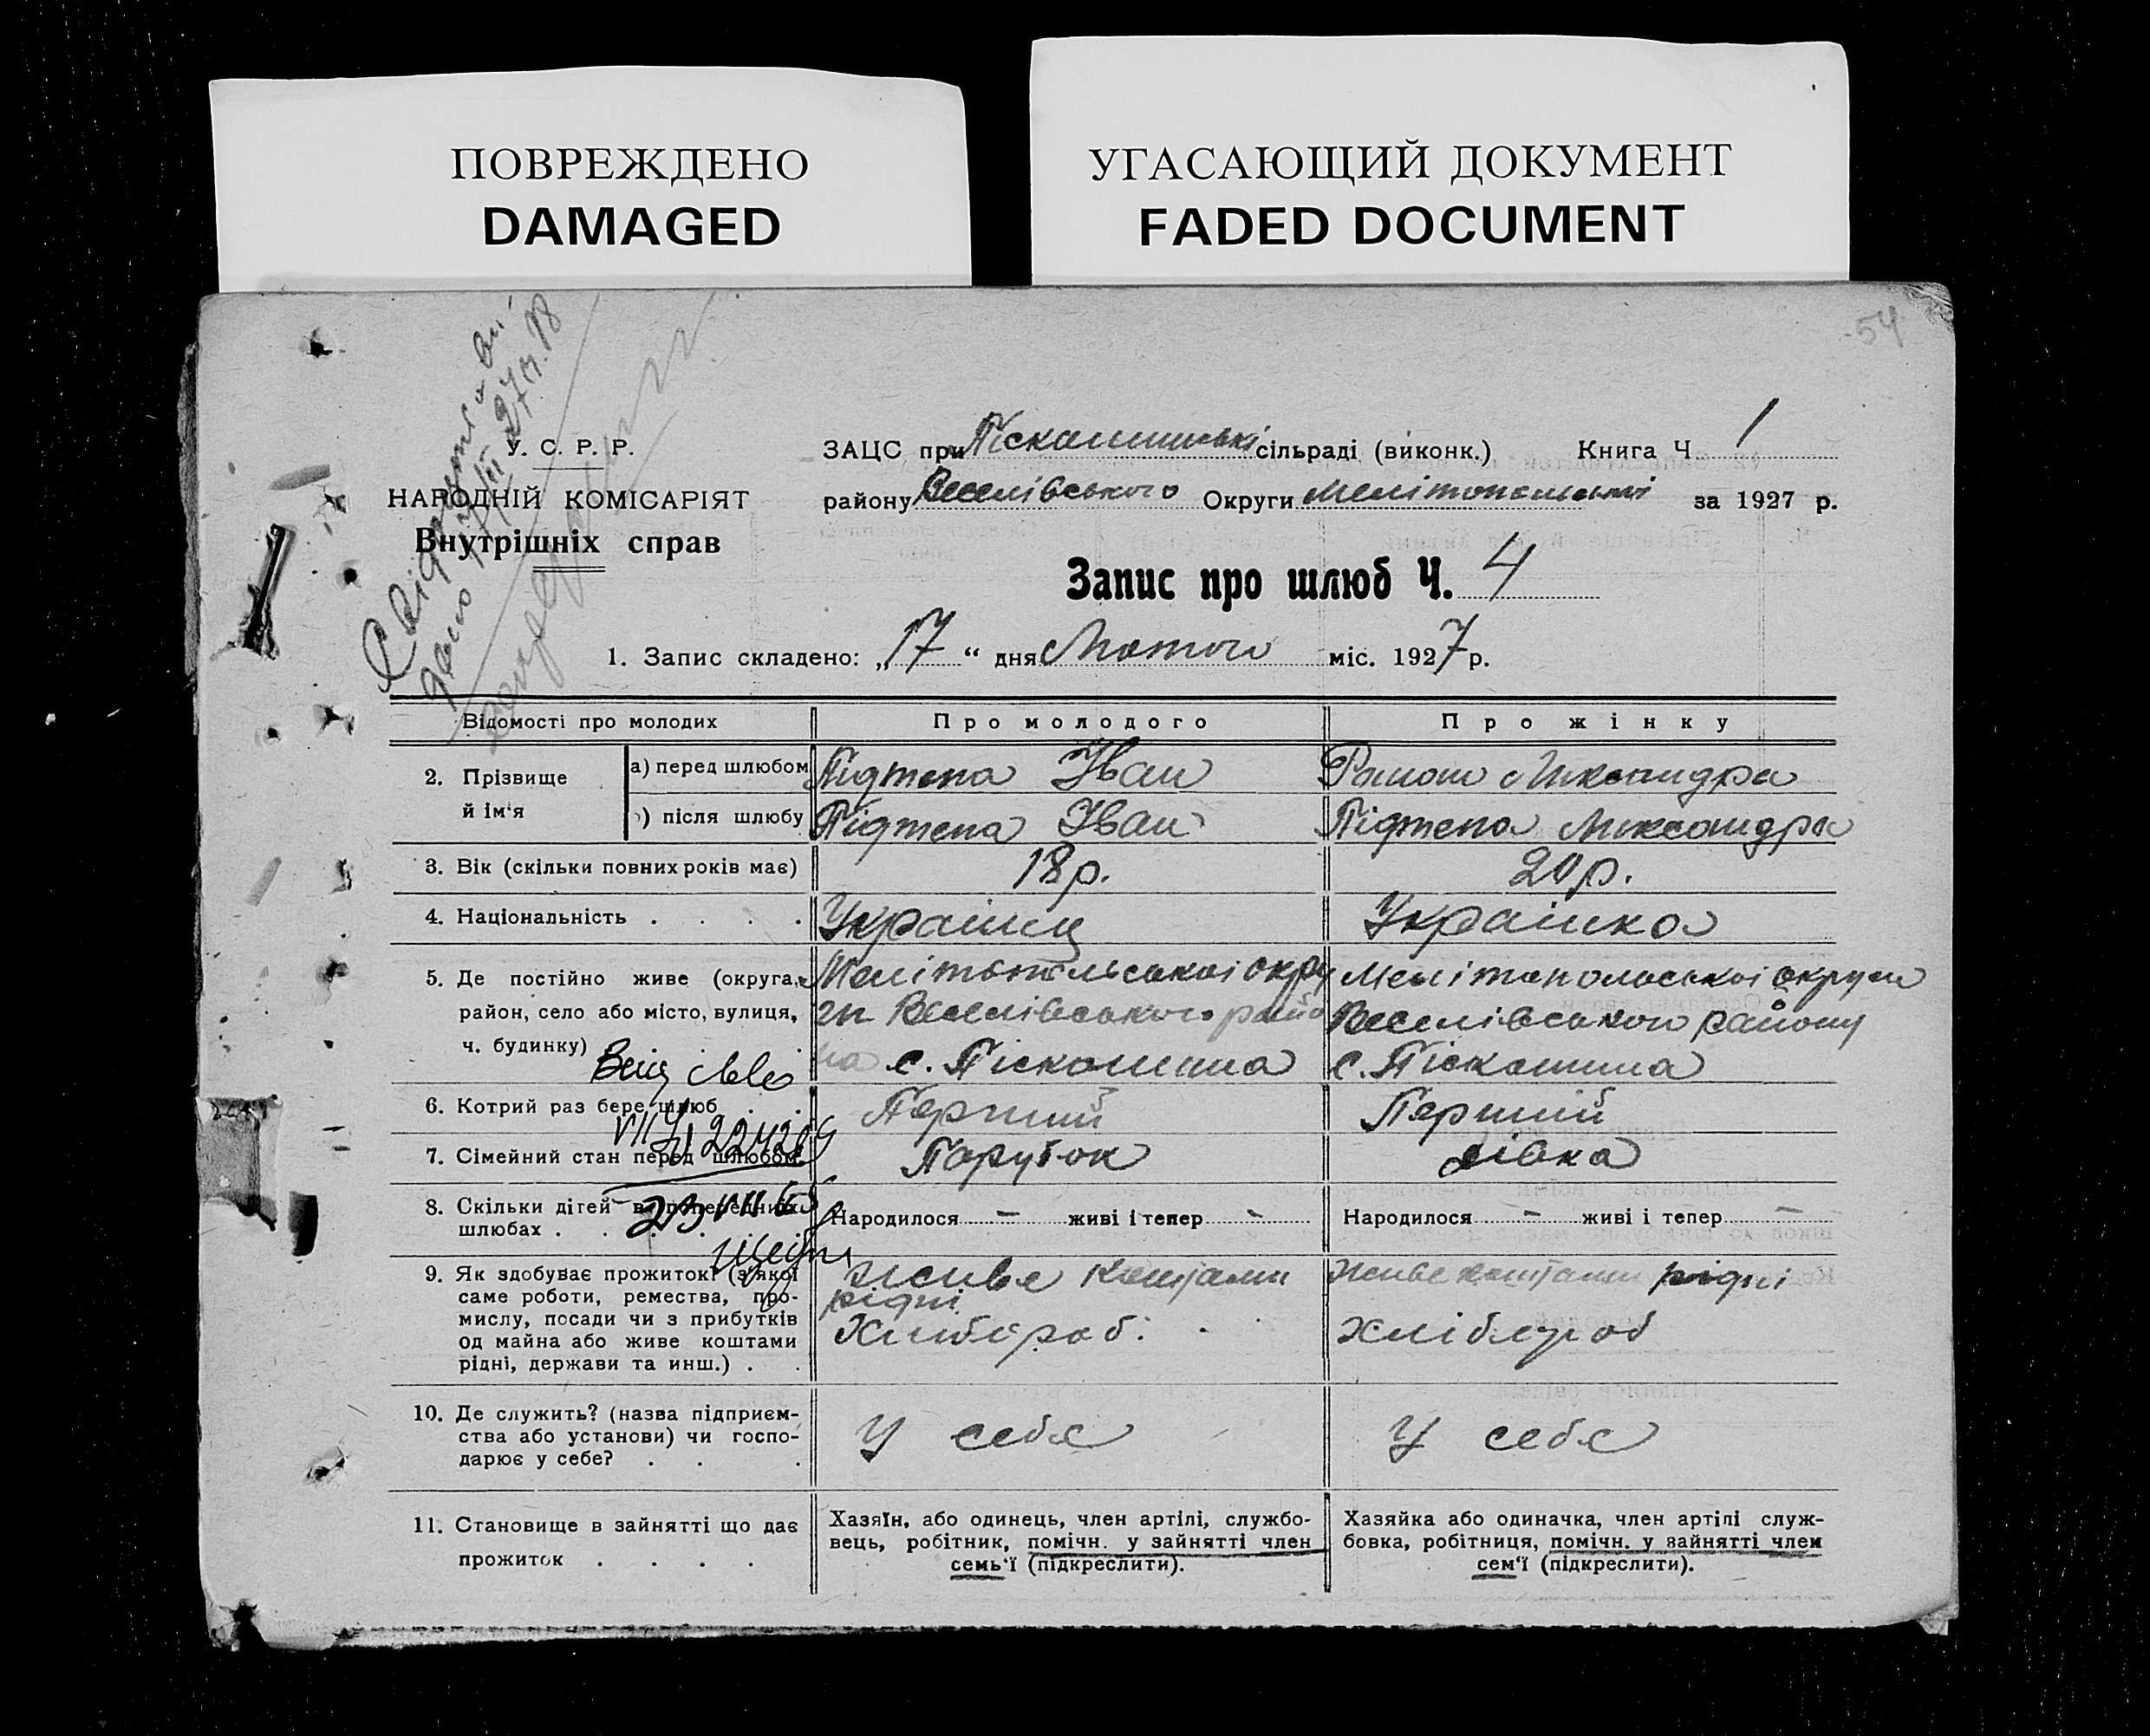 ПОВРЕЖДЕНО
DAMAGED
УГАСАЮЩИЙ ДОКУМЕНТ
FADED DOCUMENT
54
У. С. Р. Р.
НАРОДНІЙ КОМІСАРІЯТ
Внутрішніх справ
ЗАЦС при сільраді (виконк.) Книга Ч 1
району Веселівського Округи за 1927 р.
Запис про шлюб Ч. 4
1. Запис складено: „17“ дня Лютого міс. 1927 р.
Відомості про молодих
Про молодого
Про жінку
2. Прізвище й ім'я
а) перед шлюбом
Підтепа Іван
Олександра
) після шлюбу
Підтепа Іван
Підтепа Олександра
3. Вік (скільки повних років має)
18 р.
20 р.
4. Національність . . . .
Українц
Українка
5. Де постійно живе (округа,
район, село або місто, вулиця,
ч. будинку)
Мелітопільськоі окру
ги Веселівського райо
на с. Піскошина
Мелітопольськоі округи
Веселівського району
с. Піскошина
6. Котрий раз бере шлюб . .
Перший
Перший
7. Сімейний стан перед шлюбом.
Парубок
дівка
8. Скільки дітей в попередніх
шлюбах . . .
Народилося — живі і тепер -
Народилося — живі і тепер —
9. Як здобуває прожиток? (з якої
саме роботи, ремества, про-
мислу, посади чи з прибутків
од майна або живе коштами
рідні, держави та инш.) . .
живе коштами
рідні
Хлібороб.
живе коштами рідні
хлібороб
10. Де служить? (назва підприєм-
ства або установи) чи госпо-
дарює у себе? . . .
У себе
У себе
11. Становище в зайнятті що дає
прожиток . . . .
Хазяїн, або одинець, член артілі, службо-
вець, робітник, помічн. у зайнятті член
семь'ї (підкреслити).
Хазяйка або одиначка, член артілі служ-
бовка, робітниця, помічн. у зайнятті член
сем'ї (підкреслити).